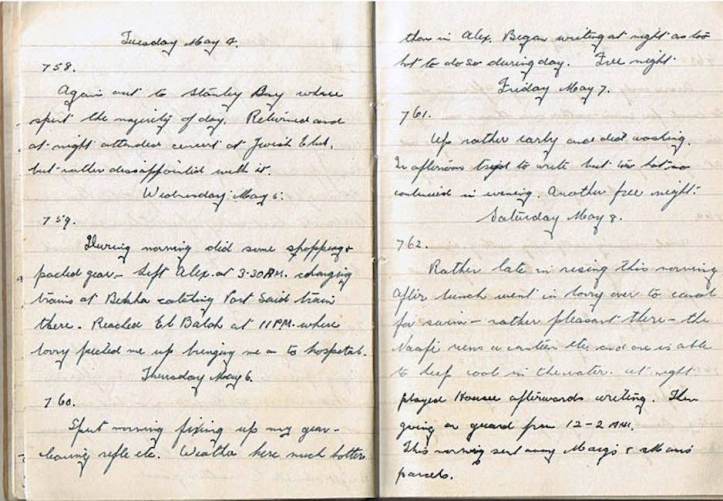 Tuesday May 4.
758.
Again out to Stanley Bay where
spent the majority of day. Returned and
at night attended concert at Jewish Club,
but rather dissappointed with it.
Wednesday May 5.
759.
During morning did some shopping &
packed gear – Left Alex. at 3.30 PM. changing
trains at Benha catching Port Said train
there. Reached El Balah at 11 PM. where
lorry picked me up bringing me on to hospital.
Thursday May 6.
760.
Spent morning fixing up my gear –
cleaning rifle etc. Weather here much hotter
than in Alex. Began writing at night as too
hot to do so during day. Free night.
Friday May 7.
761.
Up rather early and did washing.
In afternoon tried to write but too hot so
continued in evening. Another free night.
Saturday May 8.
762.
Rather late in rising this morning
After lunch went in lorry over to canal
for swim – rather pleasant there – the
Naafi runs a canteen etc and one is able
to keep cool in the water. At night
played House afterwards writing. Then
going on guard from 12–2 AM.
This morning sent away Marg's & Mum's
parcels.